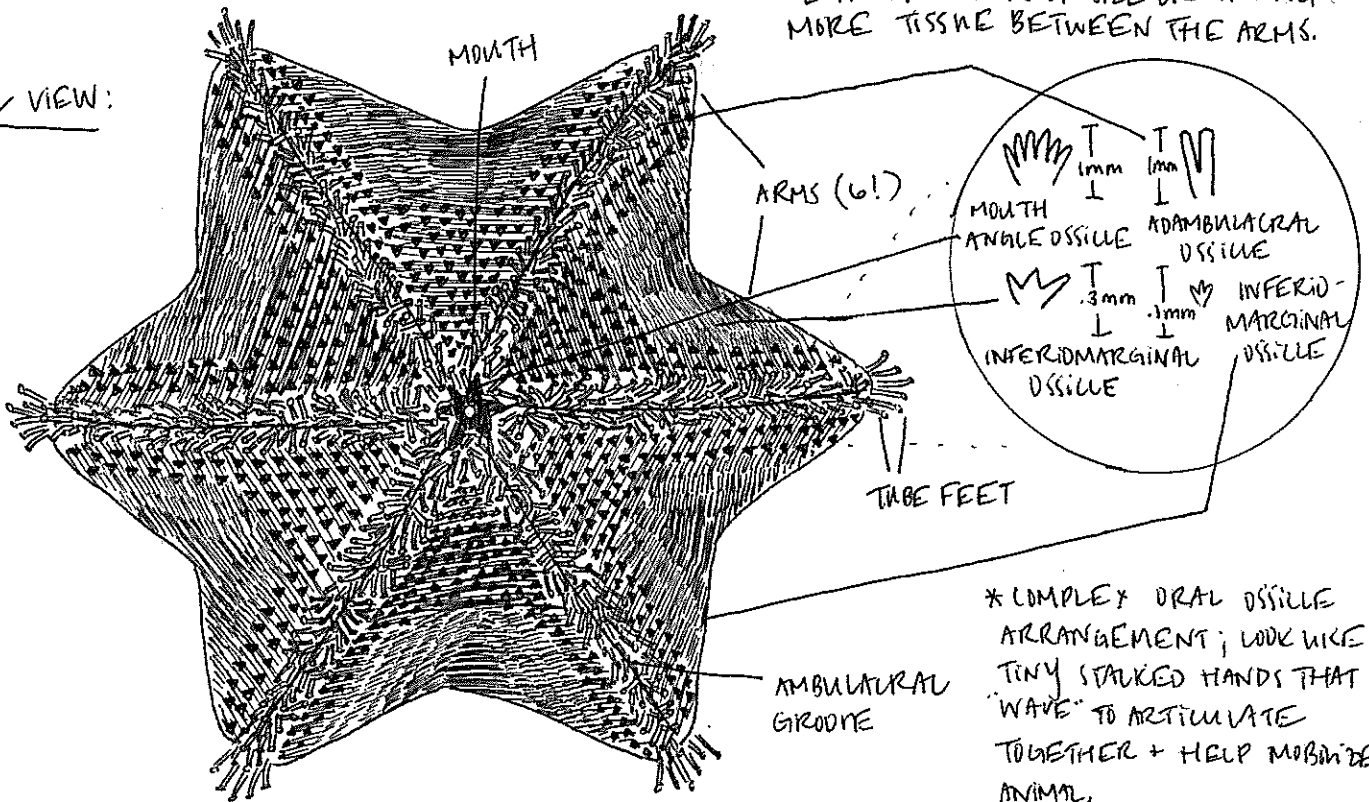 MORE TISSUE BETWEEN THE ARMS.
MOUTH
VIEW:
ARMS (6!)
1mm
1mm
MOUTH
ANGLE OSSILLE
ADAMBULACRAL
OSSILLE
.3mm
.1mm
INFERIOMARGINAL
OSSILLE
INFERIO-
MARGINAL
OSSILLE
TUBE FEET
AMBULACRAL
GROOVE
* COMPLEX ORAL OSSILLE
ARRANGEMENT; LOOK LIKE
TINY STALKED HANDS THAT
"WAVE" TO ARTICULATE
TOGETHER + HELP MOBILIZE
ANIMAL.